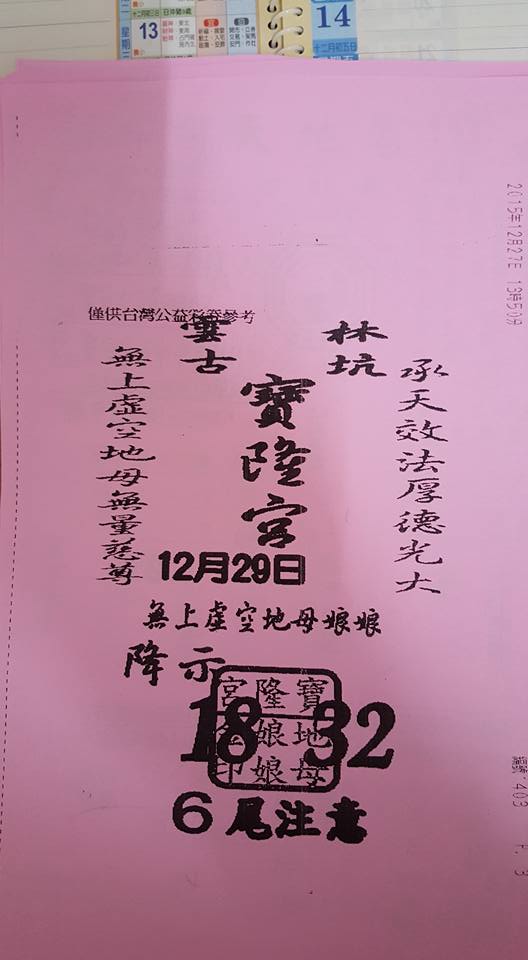 十二月初三日
日沖豬9歲
13
星期
14
十二月初五日
2015年12月27日 13時50分
僅供台灣公益彩券參考
雲林
古坑
承天效法厚德光大
寶隆宮
無上虛空地母無量慈尊
12月29日
無上虛空地母娘娘
降示
寶隆宮
地娘
母娘印
18 32
6尾注意
編號:403 P. 3